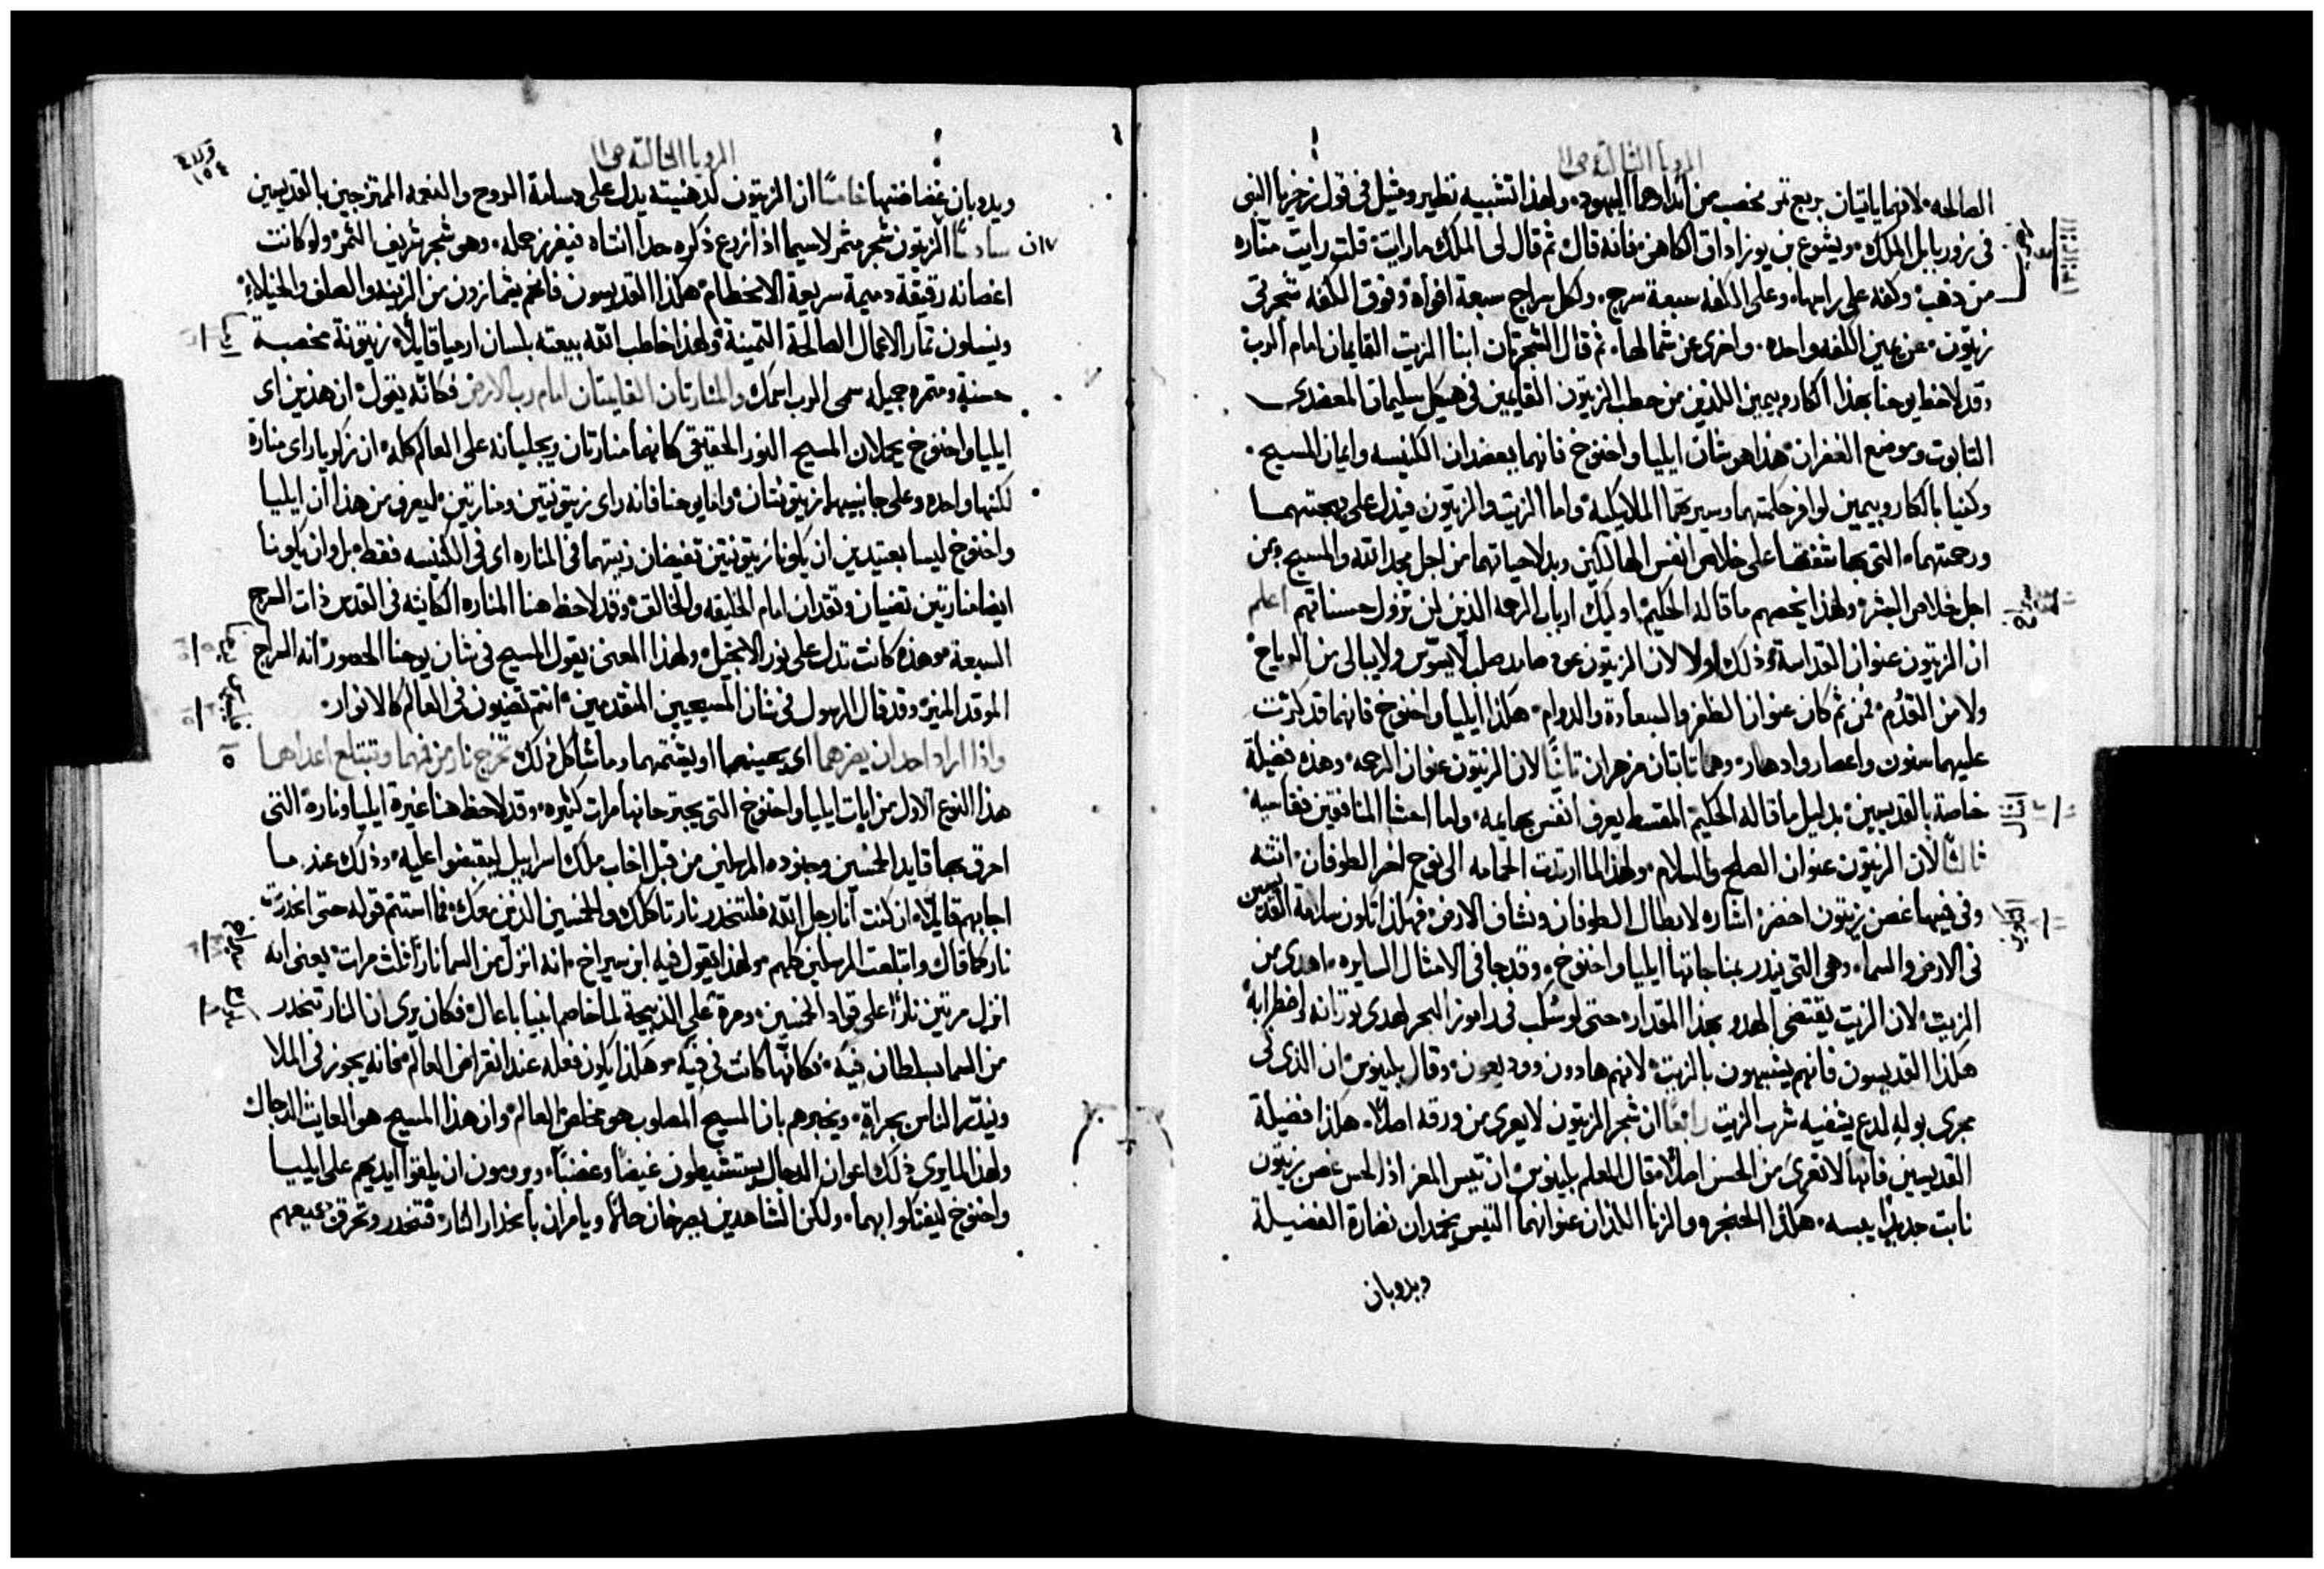 الرويا الثالثة ص ١١
الصالحه لانهما ياتيان بريع ثمر مخصب من اندادهما اليهود ولهذا تشبيه نظير ومثيل في قول زخريا النبي
في زوربابل الملك ويشوع بن يوزاداق الكاهن فانه قال ثم قال لي الملك ماذا رايت قلت رايت مناره
من ذهب وكفه على راسها وعلى الكفه سبعة سرج ولكل سراج سبعة افواه وفوق الكفه شجرتي
زيتون عن يمين الكفه واحده واخرى عن شمالها ثم قال الشجرتان ابنا الزيت القايمان امام الرب
وقد لاحظ يوحنا بهذا الكاروبيمين اللذين من حطب الزيتون القايمين في هيكل سليمان المعضدين
التابوت وموضع الغفران هذا هو شان ايليا واخنوخ فانهما يعضدان الكنيسه وايمان المسيح
وكنيا بالكاروبيمين لوافر حكمتهما وسيرتهما الملايكيه واما الزيت والزيتون فيدل على بهجتهما
ورحمتهما التي بها شفقا على خلاص انفس الهالكين وبدلا حياتهما من اجل مجد الله والمسيح ومن
اجل خلاص البشر ولهذا يخصهم ما قاله الحكيم اوليك ارباب الرحمه الذين لن تزول حسناتهم اعلم
ان الزيتون عنوان القداسة وذلك اولا لان الزيتون عوده صابد صلب لا يسوس ولا يبالى من الرياح
ولا من القدم فمن ثم كان عنوان الظفر والسعادة والدوام هكذا ايليا واخنوخ فانهما قد كرت
عليهما سنون واعصار وادهار وهما ثابتان مزهران ثانيا لان الزيتون عنوان الرحمه وهذه فضيلة
خاصة بالقديسين بدليل ما قاله الحكيم المقسط يعرف انفس بهايمه واما احشا المنافقين فقاسيه
ثالثا لان الزيتون عنوان الصلح والسلام ولهذا لما ارتدت الحمامه الى نوح اخر الطوفان انته
وفي فيها غصن زيتون اخضر اشاره لابطال الطوفان ونشاف الارض فهكذا تكون سلامة القديسين
في الارض والسما وهي التي ينذر بمناجاتها ايليا واخنوخ وقد جا في الامثال السايره اهدى من
الزيت لان الزيت يقتضي الهدو بهذا المقدار حتى لو سكب في داموز البحر لهدى ثورانه واضطرابه
هكذا القديسون فانهم يشبهون بالزيت لانهم هادون ووديعون وقال بلينوس ان الذى في
مجرى بوله لدع يشفيه شرب الزيت رابعا ان شجر الزيتون لا يعرى من ورقه اصلا هكذا فضيلة
القديسين فانها لا تعرى من الحسن اصلا فقال المعلم بلينوس ان تيس المعز اذا لحس غصن زيتون
نابت جديدا يبسه هكذا الحنجره والزنا اللذان عنوانهما التيس يخمدان نضارة الفضيلة
ويدوبان
الرويا الثالثة ص ١١
ويدوبان غضاضتها خامسا ان الزيتون لدهنيته يدل على دسامة الروح والنعمه الممتزجين بالقديسين
سادسا ان الزيتون شجر مثمر لاسيما اذا زرع ذكره حدا انثاه فيغزر حمله وهو شجر شريف الثمر ولو كانت
اغصانه رقيقة دميمة سريعة الانحطام هكذا القديسون فانهم يشمازون من الزينه والصلف والخيلاء
وينسلون ثمار الاعمال الصالحة الثمينة ولهذا خاطب الله بيعته بلسان ارميا قايلا زيتونة مخصبة
حسنة ومثمره جميله سمى الرب اسمك والمنارتان القايمتان امام رب الارض فكانه يقول ان هذين اي
ايليا واخنوخ يحملان المسيح النور الحقيقي كانهما منارتان ويجليانه على العالم كله ان زكريا راى منارة
لكنها واحده وعلى جانبيها زيتونتان واما يوحنا فانه راى زيتونتين ومنارتين ليعرف من هذا ان ايليا
واخنوخ ليسا بعتيدين ان يكونا زيتونتين تفيضان زيتهما في المناره اي في الكنيسه فقط بل وان يكونا
ايضا منارتين تضيان وتقدان امام الخليقه والخالق وقد لاحظ هنا المناره الكاينه في القدس ذات السرج
السبعة وهذه كانت تدل على نور الانجيل ولهذا المعنى يقول المسيح في شان يوحنا الحصور انه السراج
الموقد المنير وقد قال الرسول في شان المسيحيين المتقدمين انتم تضيون في العالم كالانوار
واذا اراد احد ان يضرهما اى يهينهما او يشتمهما وما شاكل ذلك تخرج نار من فمهما وتبتلع اعداهما
هذا النوع الاول من ايات ايليا واخنوخ التي يجترحانها مرات كثيره وقد لاحظ هنا غيرة ايليا وناره التي
احرق بها قايد الخمسين وجنوده المرسلين من قبل اخاب ملك اسراييل ليقبضوا عليه وذلك عند ما
اجابهم قايلا ان كنت انا رجل الله فلتنحدر نار تاكلك والخمسين الذين معك فما استتم قوله حتى انحدرت
نار كما قال وابتلعت المرسلين كلهم ولهذا يقول فيه ابن سيراخ انه انزل من السما نارا ثلث مرات يعني انه
انزل مرتين نارا على قواد الخمسين ومرة على الذبيحة لما خاصم انبيا باعال فكان يرى ان النار تنحدر
من السما بسلطان فيه فكانها كانت في فيه وهكذا يكون فعله عند انقراض العالم فانه يجوز في الملا
وينذر الناس بجراة ويخبرهم بان المسيح المصلوب هو مخلص العالم وان هذا المسيح هو العايث الدجال
ولهذا لما يروى ذلك اعوان الدجال يستشيطون غيضا وغضبا ويرومون ان يلقوا ايديهم على ايليا
واخنوخ ليفتكوا بهما ولكن الشاهدين يصرخان حالا ويامران بانحدار النار فتنحدر وتحرق جميعهم